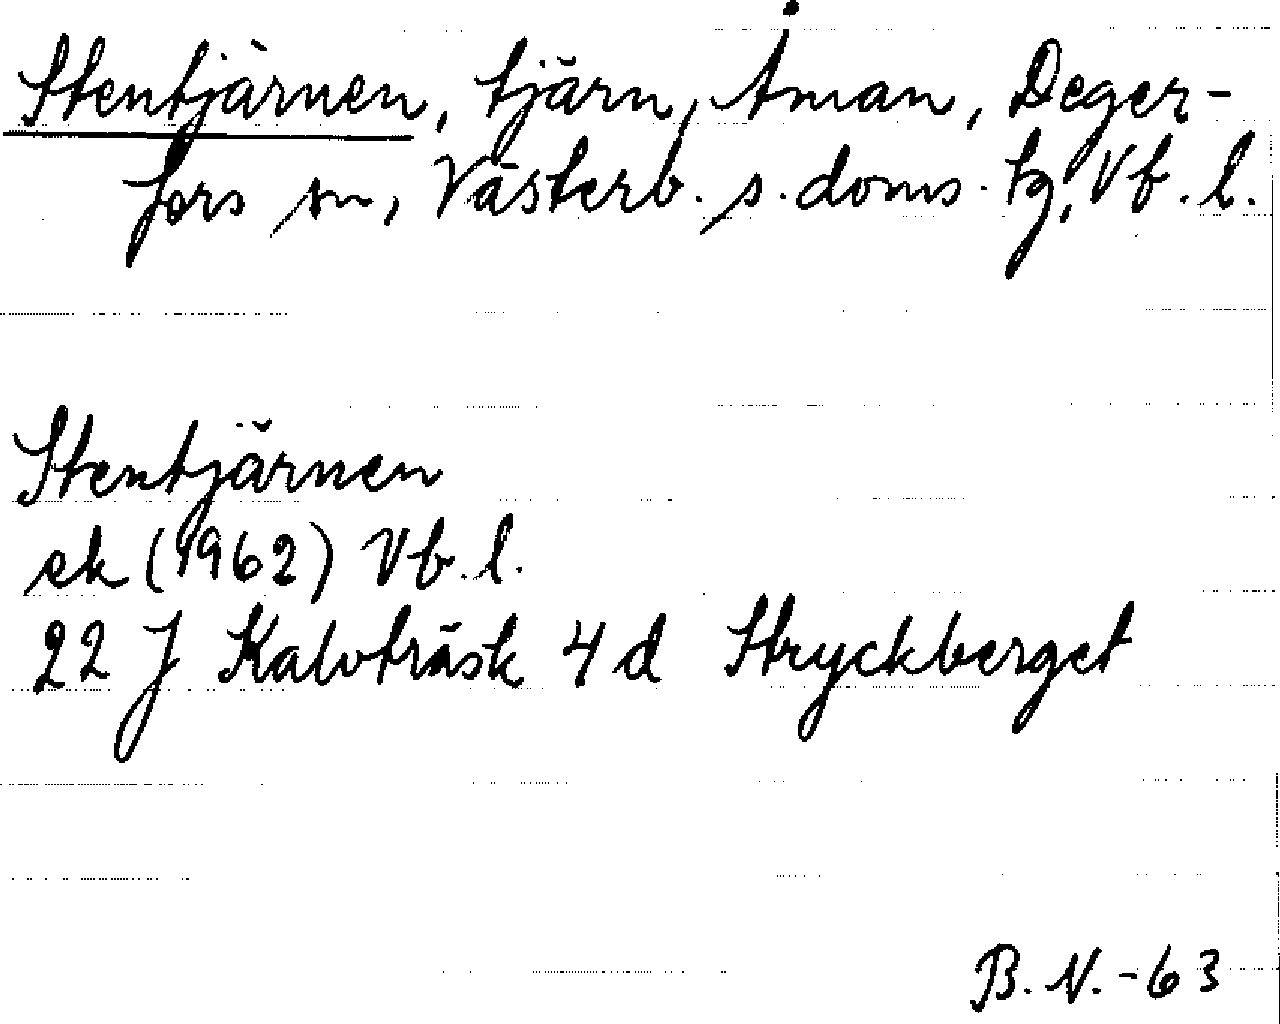 Stentjärnen, tjärn, Åman, Deger-
fors sn, Västerb. s. doms. tg, Vb. l.
Stentjärnen
ek (1962) Vb. l.
22 J Kalvträsk 4 d Stryckberget
B. N. -63